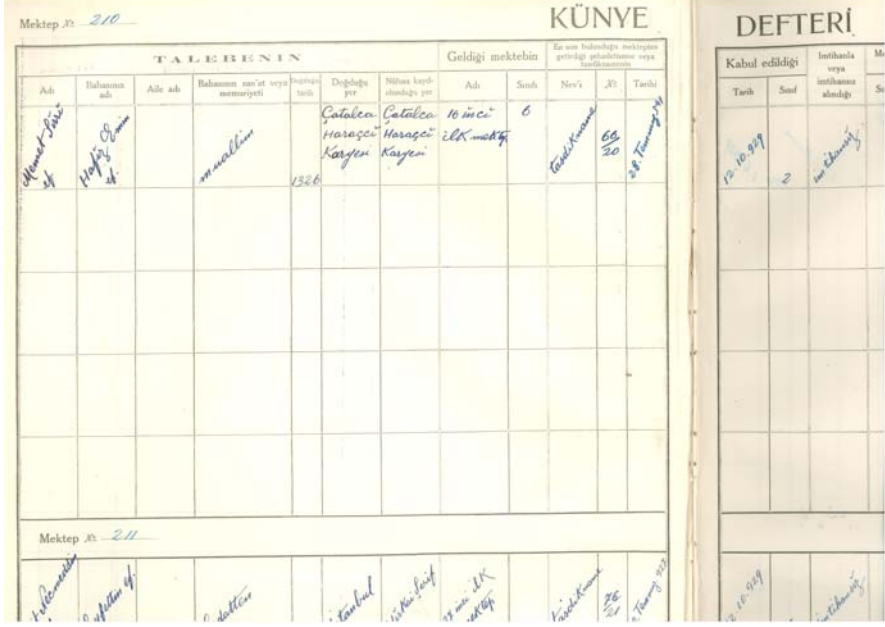 Mektep № 210
KÜNYE
DEFTERİ
TALEBENİN
Geldiği mektebin
En son bulunduğu mektepten getirdiği şehadetname veya tasdiknamenin
Kabul edildiği
İmtihanla veya imtihansız alındığı
Adı
Babasının adı
Aile adı
Babasının san'at veya memuriyeti
Doğduğu tarih
Doğduğu yer
Nüfusa kayd-olunduğu yer
Adı
Sınıfı
Nev'i
№
Tarihi
Tarih
Sınıf
Memet Sırrı ef.
Hafız Emin ef.
muallim
1326
Çatalca Haraççı Karyesi
Çatalca Haraççı Karyesi
16 inci ilk mektep
6
tasdikname
66/20
28. Temmuz
12.10.929
2
imtihansız
Mektep № 211
Necmeddin
ef.
28 inci ilk
tasdikname
76/21
12.10.929
imtihansız